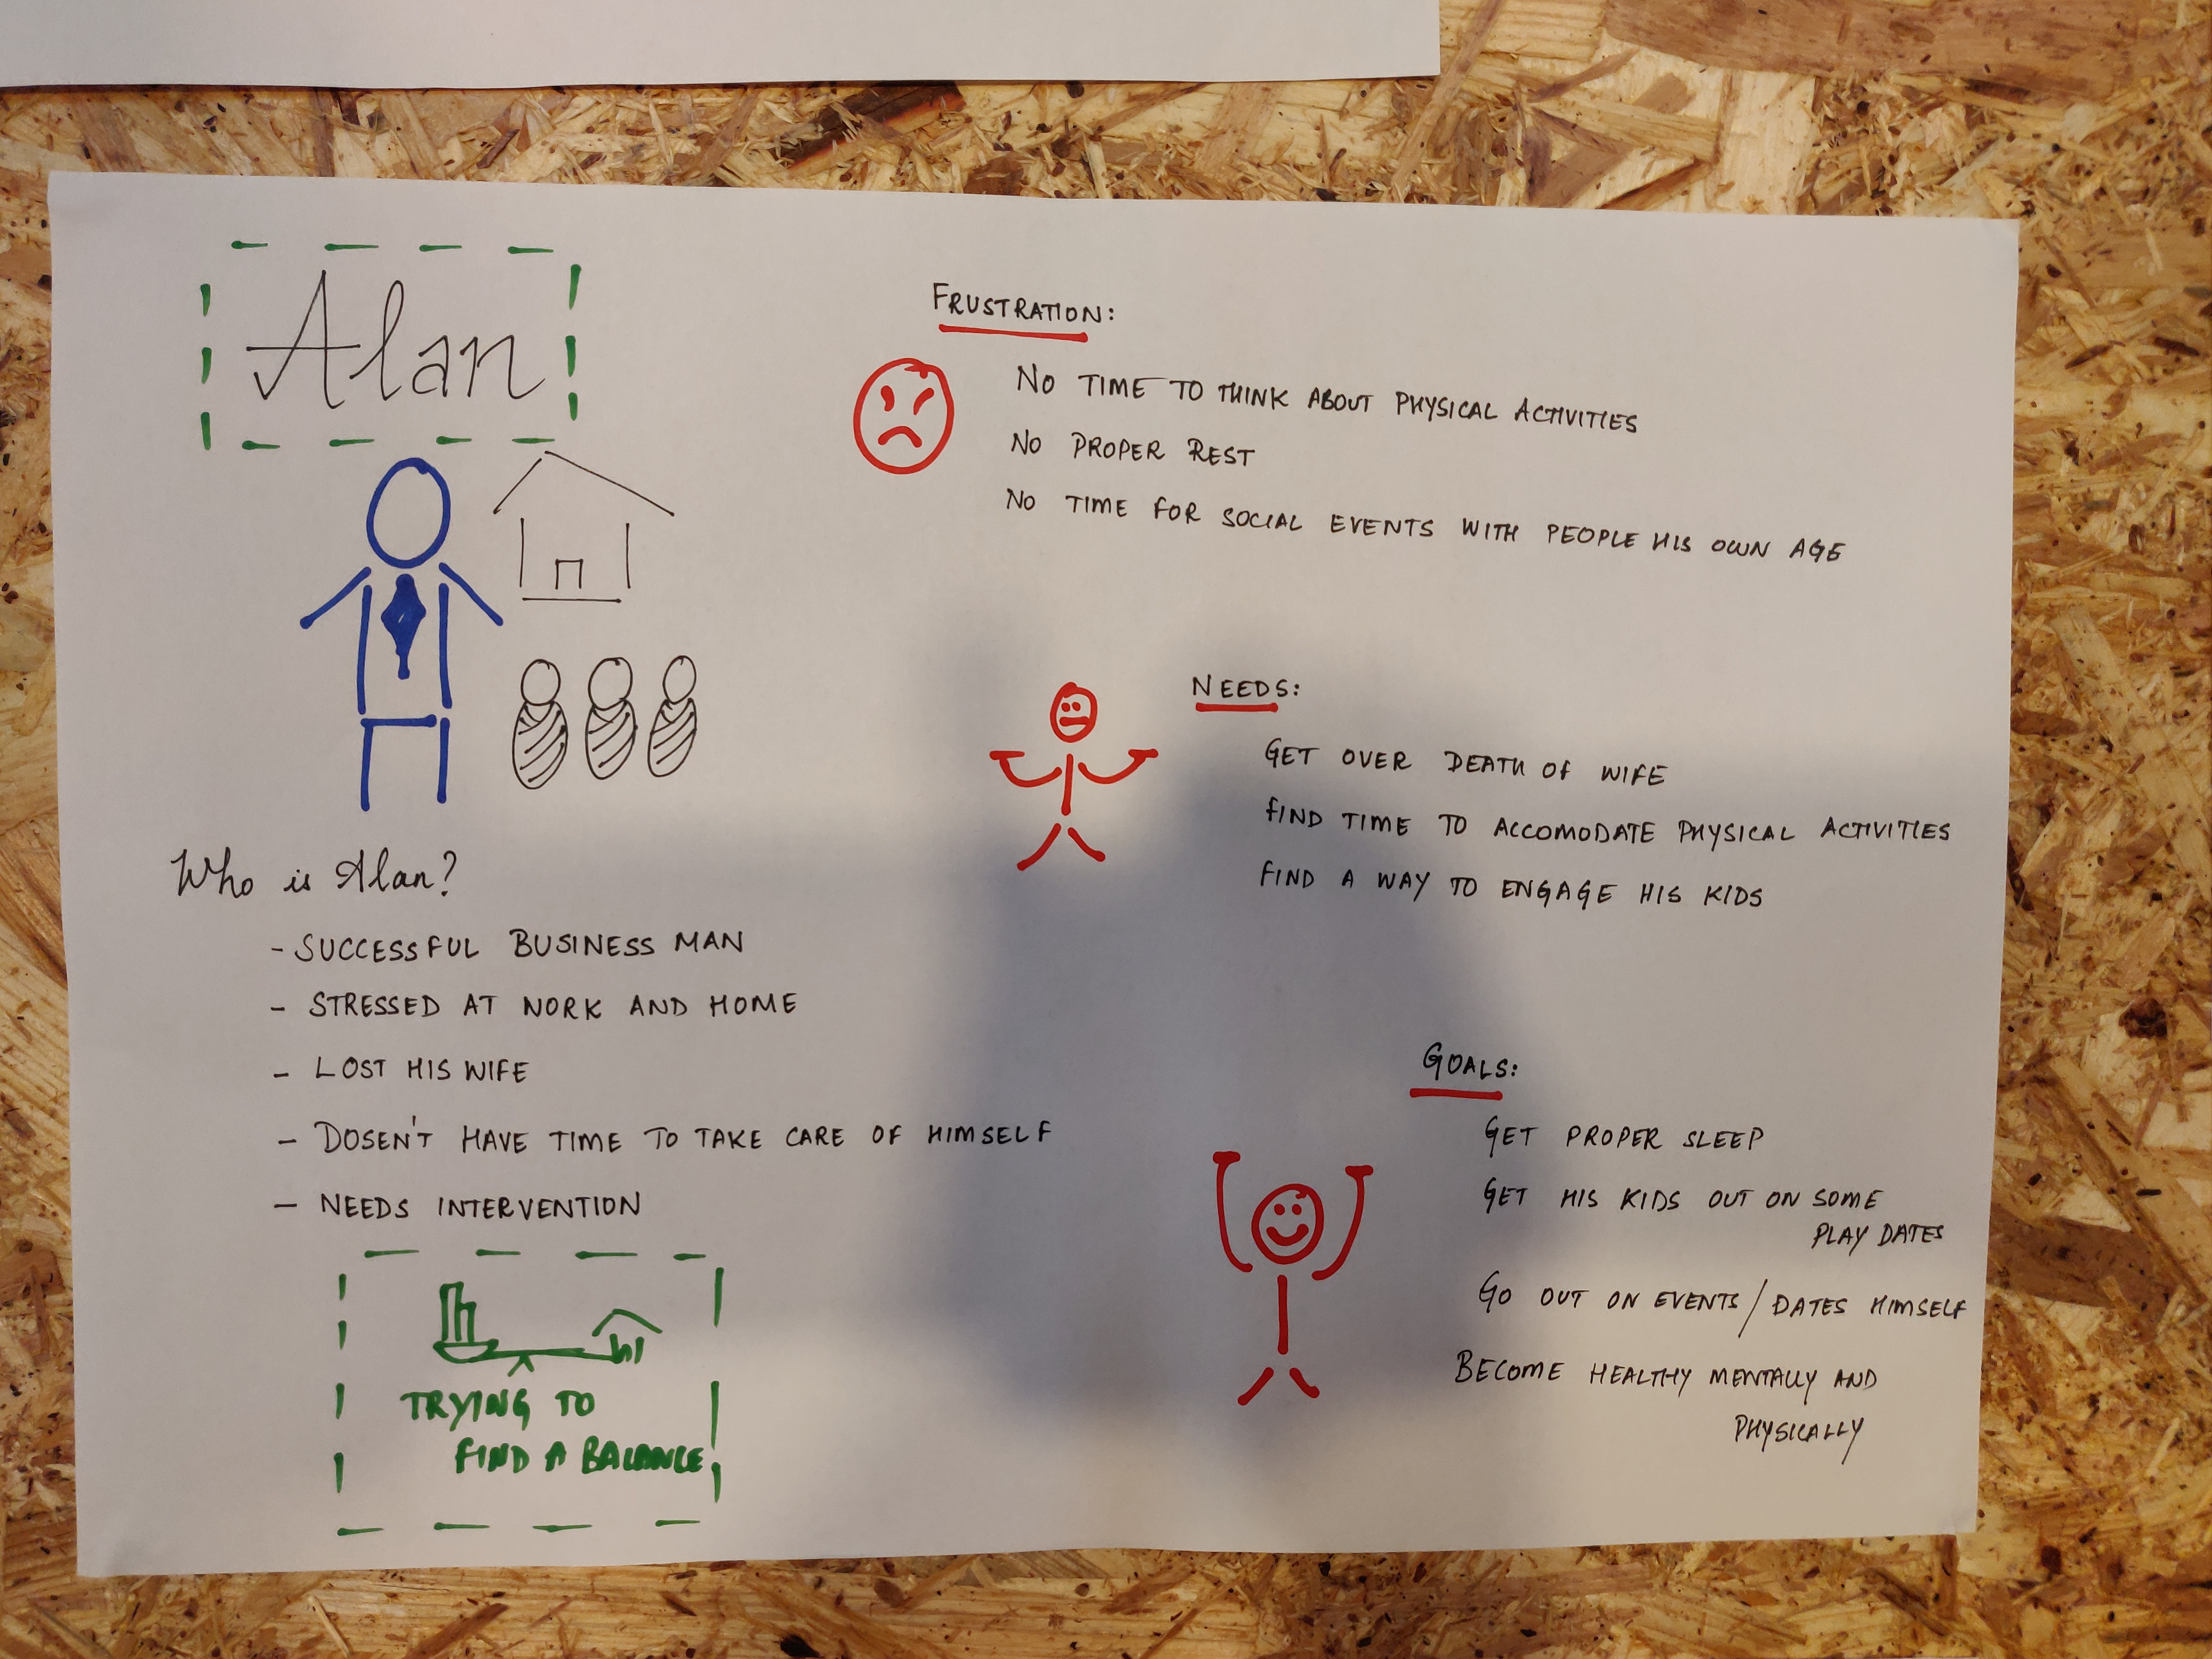 Alan
Who is Alan?
- SUCCESSFUL BUSINESS MAN
- STRESSED AT NORK AND HOME
- LOST HIS WIFE
- DOSEN'T HAVE TIME TO TAKE CARE OF HIMSELF
- NEEDS INTERVENTION
TRYING TO
FIND A BALANCE
FRUSTRATION:
NO TIME TO THINK ABOUT PHYSICAL ACTIVITIES
NO PROPER REST
NO TIME FOR SOCIAL EVENTS WITH PEOPLE HIS OWN AGE
NEEDS:
GET OVER DEATH OF WIFE
FIND TIME TO ACCOMODATE PHYSICAL ACTIVITIES
FIND A WAY TO ENGAGE HIS KIDS
GOALS:
GET PROPER SLEEP
GET HIS KIDS OUT ON SOME
PLAY DATES
GO OUT ON EVENTS/DATES HIMSELF
BECOME HEALTHY MENTALLY AND
PHYSICALLY